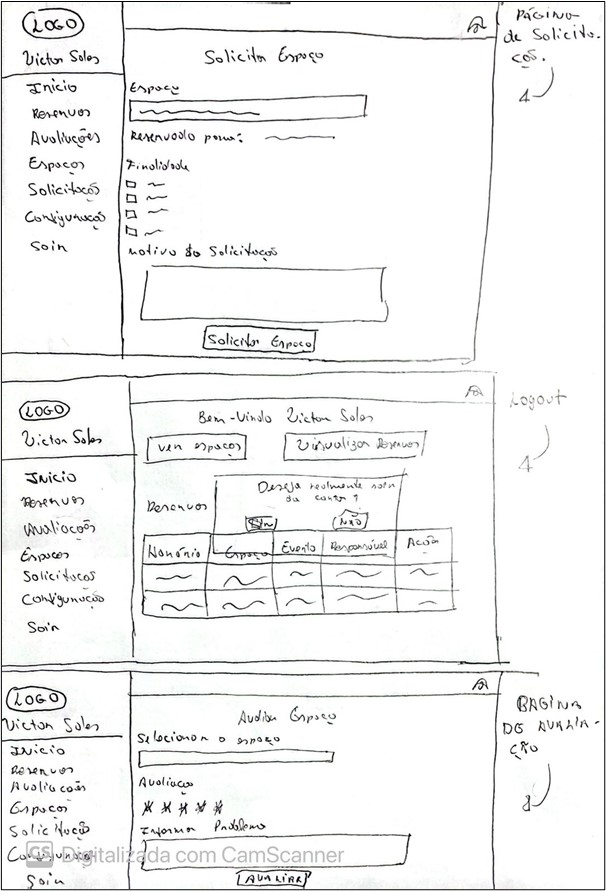 LOGO
Victor Sales
Início
Reservas
Avaliações
Espaços
Solicitação
Configuração
Sair
Solicitar Espaço
Espaço
Reservado para:
Finalidade
motivo da Solicitação
Solicitar Espaço
PÁGINA
de Solicita-
ção.
4
LOGO
Victor Sales
Início
Reservas
Avaliação
Espaços
Solicitação
Configuração
Sair
Bem-Vindo Victor Sales
ver espaços
Visualizar Reservas
Deseja realmente sair
da conta?
Sim
Não
Reservas
Horário
Espaço
Evento
Responsável
Ação
Logout
4
LOGO
Victor Sales
Início
Reservas
Avaliações
Espaços
Solicitação
Configuração
Sair
Avaliar Espaço
Selecionar o espaço
Avaliação
Informar Problema
AVALIAR
PAGINA
DE AVALIA-
ÇÃO
CS Digitalizada com CamScanner